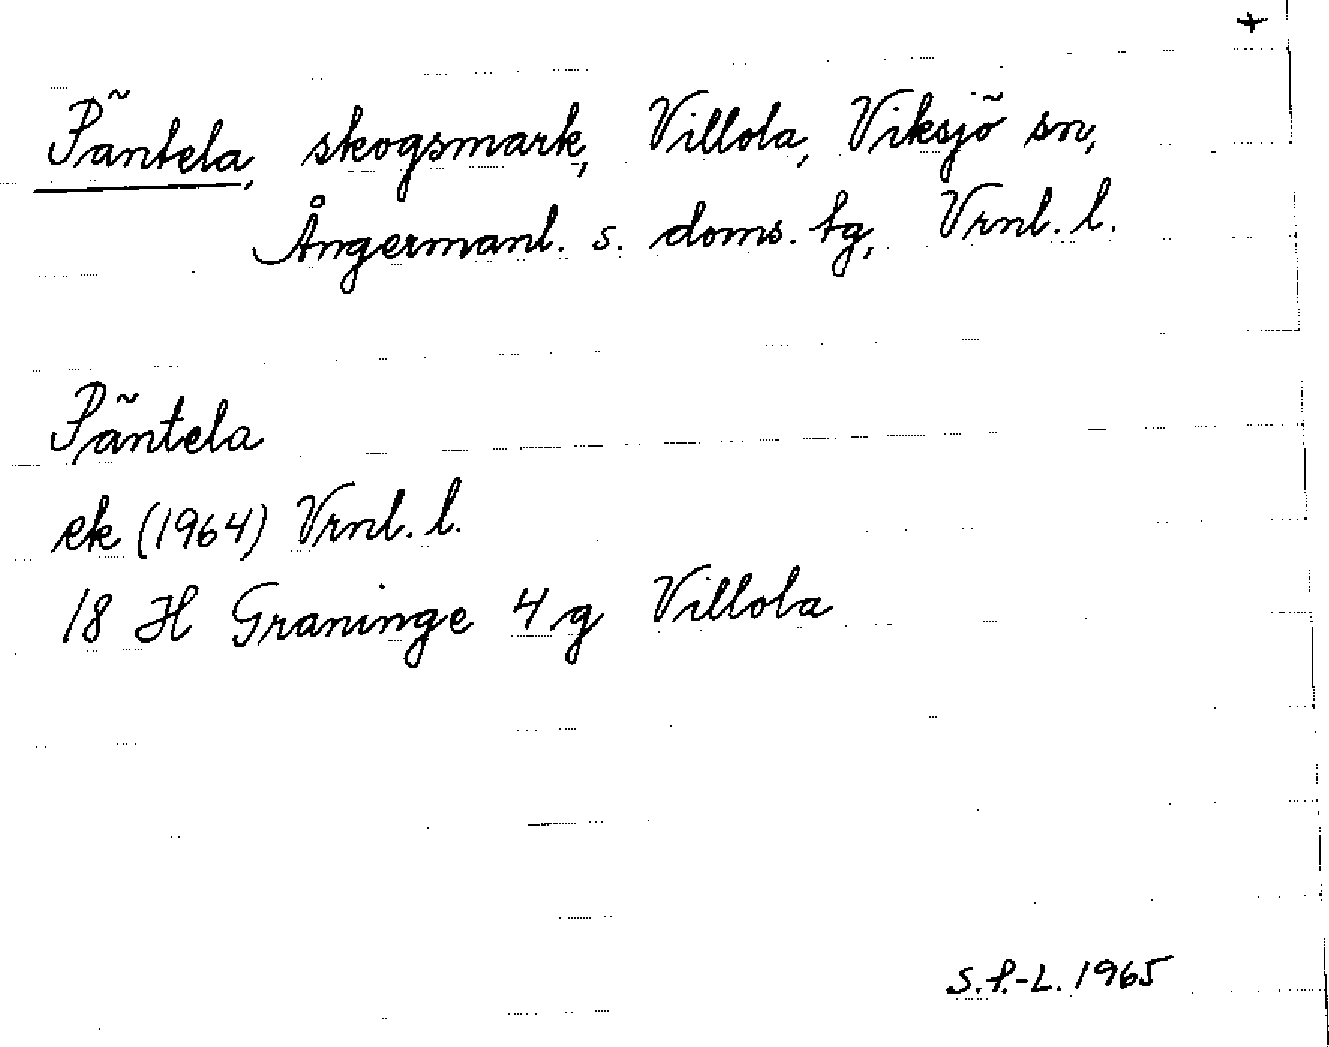 +
Päntela, skogsmark, Villola, Viksjö sn,
Ångermanl. s. doms. tg, Vrnl. l.
Päntela
ek (1964) Vrnl. l.
18 H Graninge 4 g Villola
S.P.-L. 1965